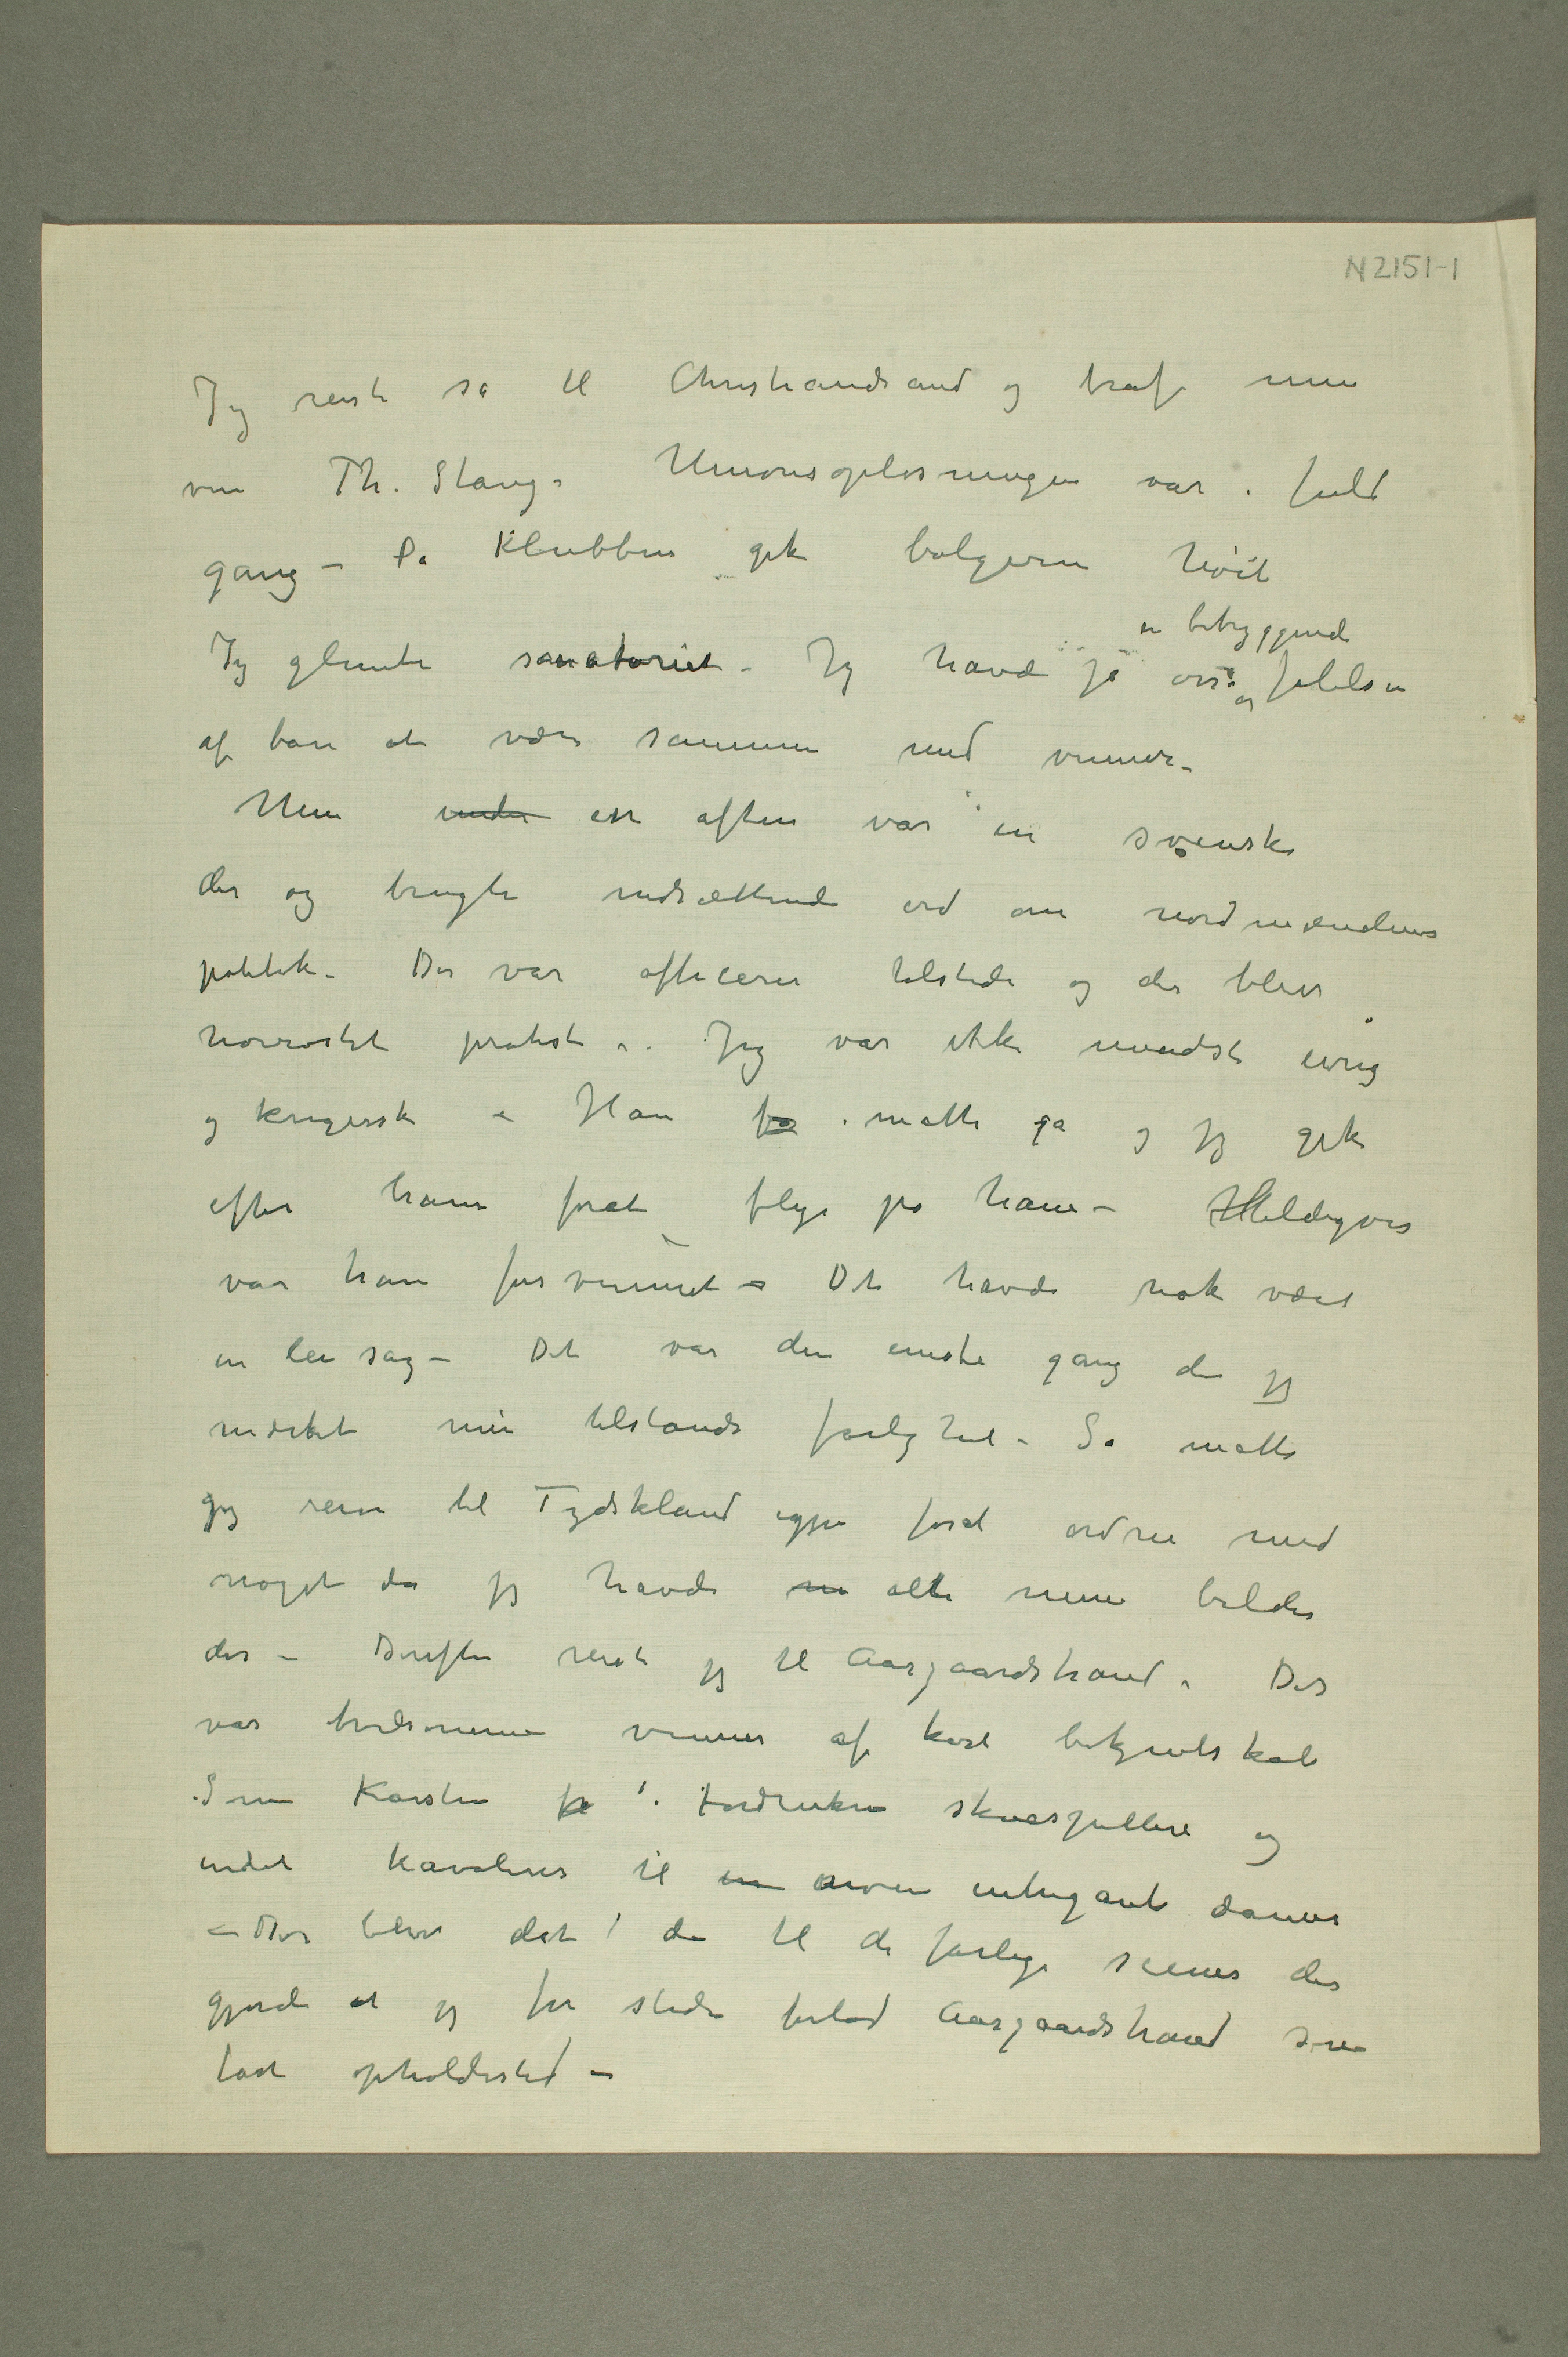 N 2151-1
Jeg reiste så til Christiandsand og traf min
ven Th. Stang. Unionsopløsningen var i fuld
gang – På Klubben gik bølgerne høit
Jeg glemte sanatoriet – Jeg havde jo også
en betryggende
følelse
af bare at være sammen med venner –
Men under en aften var en svenske
der og brugte nedsættende ord om nordmændenes
politik – Der var officerer tilstede og der blev
høirøstet protest – Jeg var ikke mindst ivrig
og krigersk – Han måtte gå og jeg gik
efter ham forat flyge på ham – Heldigvis
var han forsvunnet – Det havde nok vært
en lei sag – Det var den eneste gang da jeg
mærket min tilstands farlighed – Så måtte
jeg reise til Tydskland igjen forat ordne med
noget da jeg havde alle mine billeder
der – Derefter reiste jeg til Aasgaardstrand. Det
var tvilsomme venner af kort bekjentskab
Som Karsten fordrukne skuespillere og
endel kavalerer til noen intrigante damer
– Der blev det da til de farlige scener der
gjorde at jeg for stedse forlod Aasgaardstrand som
fast opholdssted –